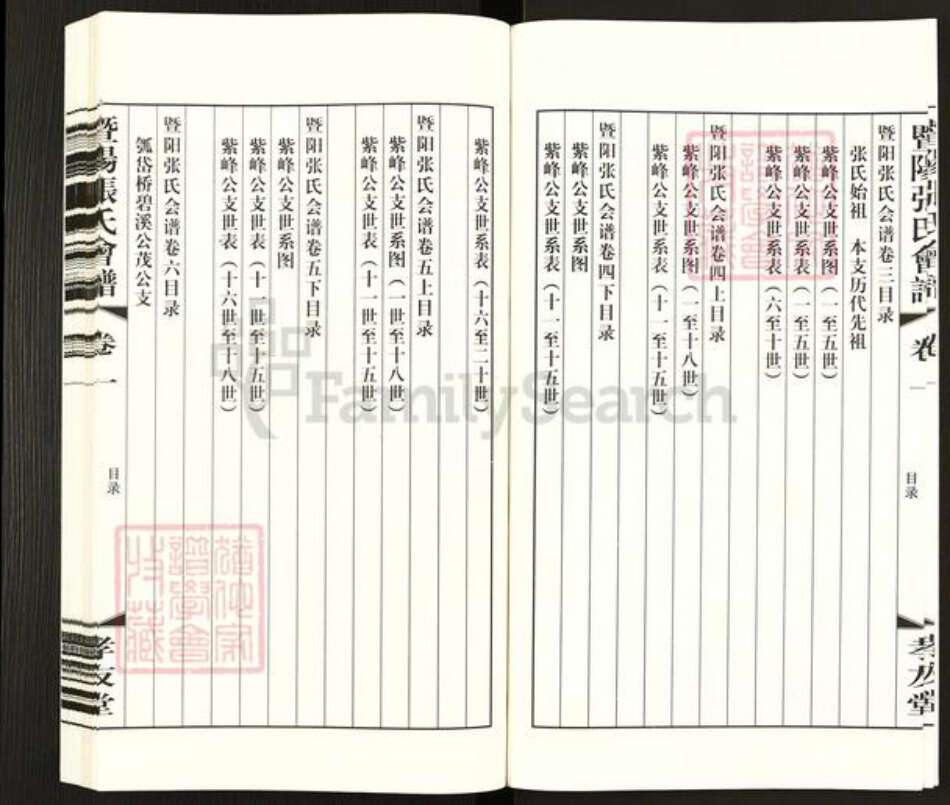 暨阳张氏会谱卷三目录
张氏始祖 本支历代先祖
紫峰公支世系图(一至五世)
紫峰公支世系表(一至五世)
紫峰公支世系表(六至十世)
暨阳张氏会谱卷四上目录
紫峰公支世系图(一至十八世)
紫峰公支世系表(十一至十五世)
暨阳张氏会谱卷四下目录
紫峰公支世系图
紫峰公支世系表(十一至十五世)
紫峰公支世系表(十六至二十世)
暨阳张氏会谱卷五上目录
紫峰公支世系图(一世至十八世)
紫峰公支世表(十一世至十五世)
暨阳张氏会谱卷五下目录
紫峰公支世系图
紫峰公支世表(十一世至十五世)
紫峰公支世表(十六世至十八世)
暨阳张氏会谱卷六目录
瓠岱桥碧溪公茂公支
暨陽張氏會譜
卷一
目录
孝友堂
暨陽張氏會譜
卷一
目录
孝友堂
FamilySearch